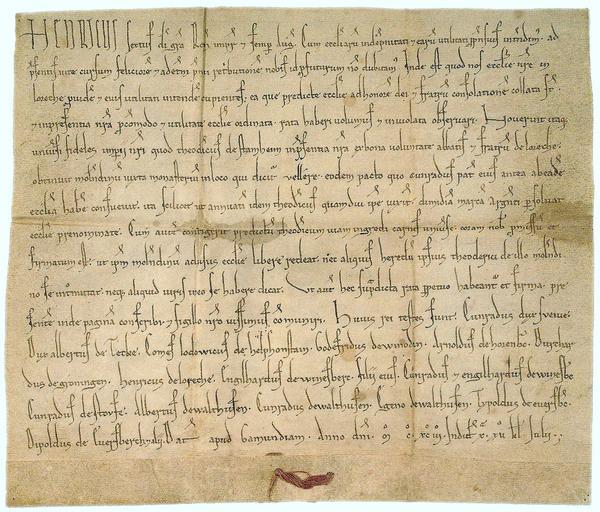 HENRICUS sextus di gra Rom impr & semp aug. Cum eccliaru indepnitati & earu utilitati intendim. ad
psentis uite cursum feliciore & adetni pmii retributione nobis id pfuturum no dubitam. Inde est quod nos ecclie ure in
loreche puide & eius utilitati intende cupientes. ea que predicte ecclie ad honore dei & fratru consolatione collata st.
& in psentia nra pcomodo & utilitate ecclie ordinata. rata haberi volumus & inviolata observari. Noverint itaq
univsi fideles imperii nri quod theodericus de stamhem in psentia nra ex bona voluntate abbatis & fratru de loreche.
obtinuit molendinu iuxta monasteriu in loco qui dicit vellere. eodem pacto quo cunradus pat eius antea ab eade
ecclia habe consuevit. ita felicet ut annuati idem theodericus quamdiu ipe vixit. dimidia marca argenti psolvat
ecclie prenominate. Cum aute contigerit predictu theodericum viam ingredi carnis univse. coram nob pmissu et
firmatum est. ut ipm molendinu ad usus ecclie libere redeat. nec aliquis heredu ipsius theoderici de illo molendi
no se intmittat. neq aliquid iuris in eo se habere dicat. Ut aut hec supdicta rata ppetuo habeant & firma. pre
sente inde pagina conscribi & sigillo nro iussimus comuniri. Huius rei testes sunt. Cunradus dux suevie.
Dux albertus de Tecke. Comes lodewicus de helphenstein. Godefridus de winodin. Arnoldus de horenbc. Burchar
dus de groningen. henricus de loreche. Engilhardus de winesberc. filii eius. Cunradus & engilhardus de winesbc.
Cunradus de storfe. Albertus de walthusen. Cunradus de walthusen. Egeno de walthusen. Dypoldus de eversbc.
Dipoldus de Dat apud Gamundiam. Anno dni. m c xc iii. Indict x. xii kl iulii.